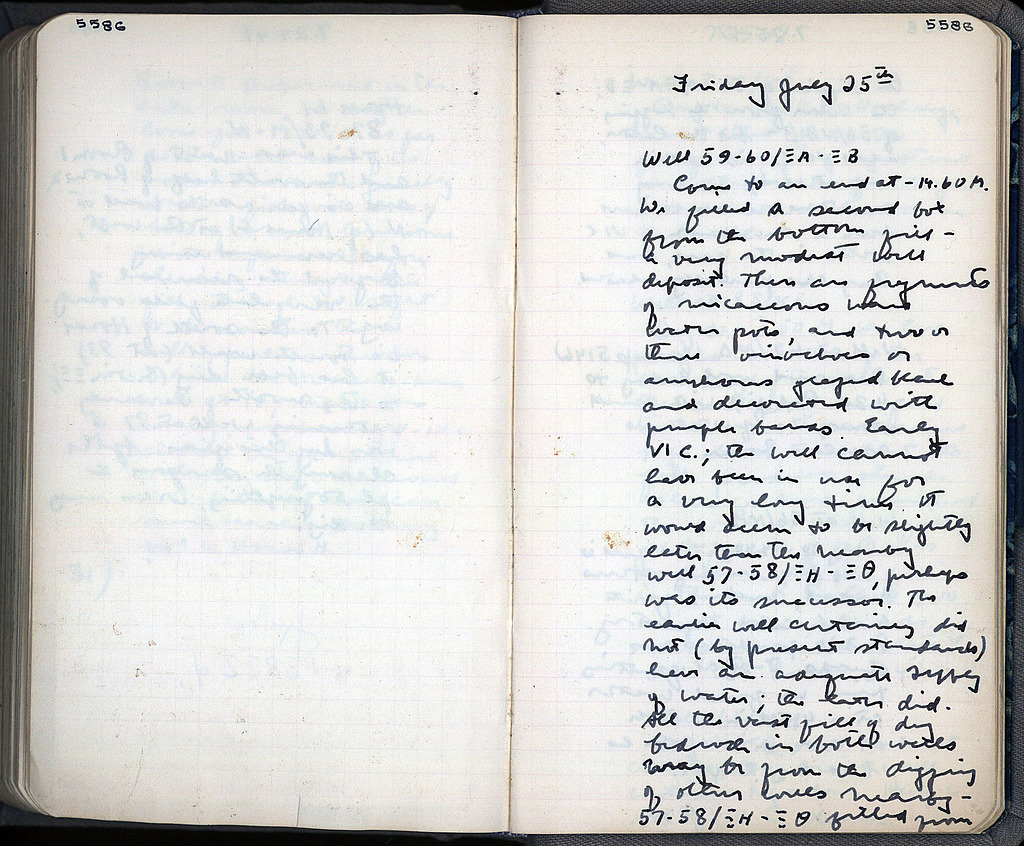 5586
5586
Friday July 25th
Well 59-60/ΞA-ΞB
Comes to an end at -14.60 M.
We filled a second box
from the bottom fill -
a very modest well
deposit. There are fragments
of micaceous ware
water pots, and two or
three oinochoes or
amphoras glazed black
and decorated with
purple bands. Early
VI C.; the well cannot
have been in use for
a very long time. It
would seem to be slightly
later than the nearby
well 57-58/ΞH-ΞΘ, perhaps
was its successor. The
earlier well certainly did
not (by present standards)
have an adequate supply
of water; the later did.
All the vast fill of dug
bedrock in both wells
may be from the digging
of other wells nearby -
57-58/ΞH-ΞΘ filled from